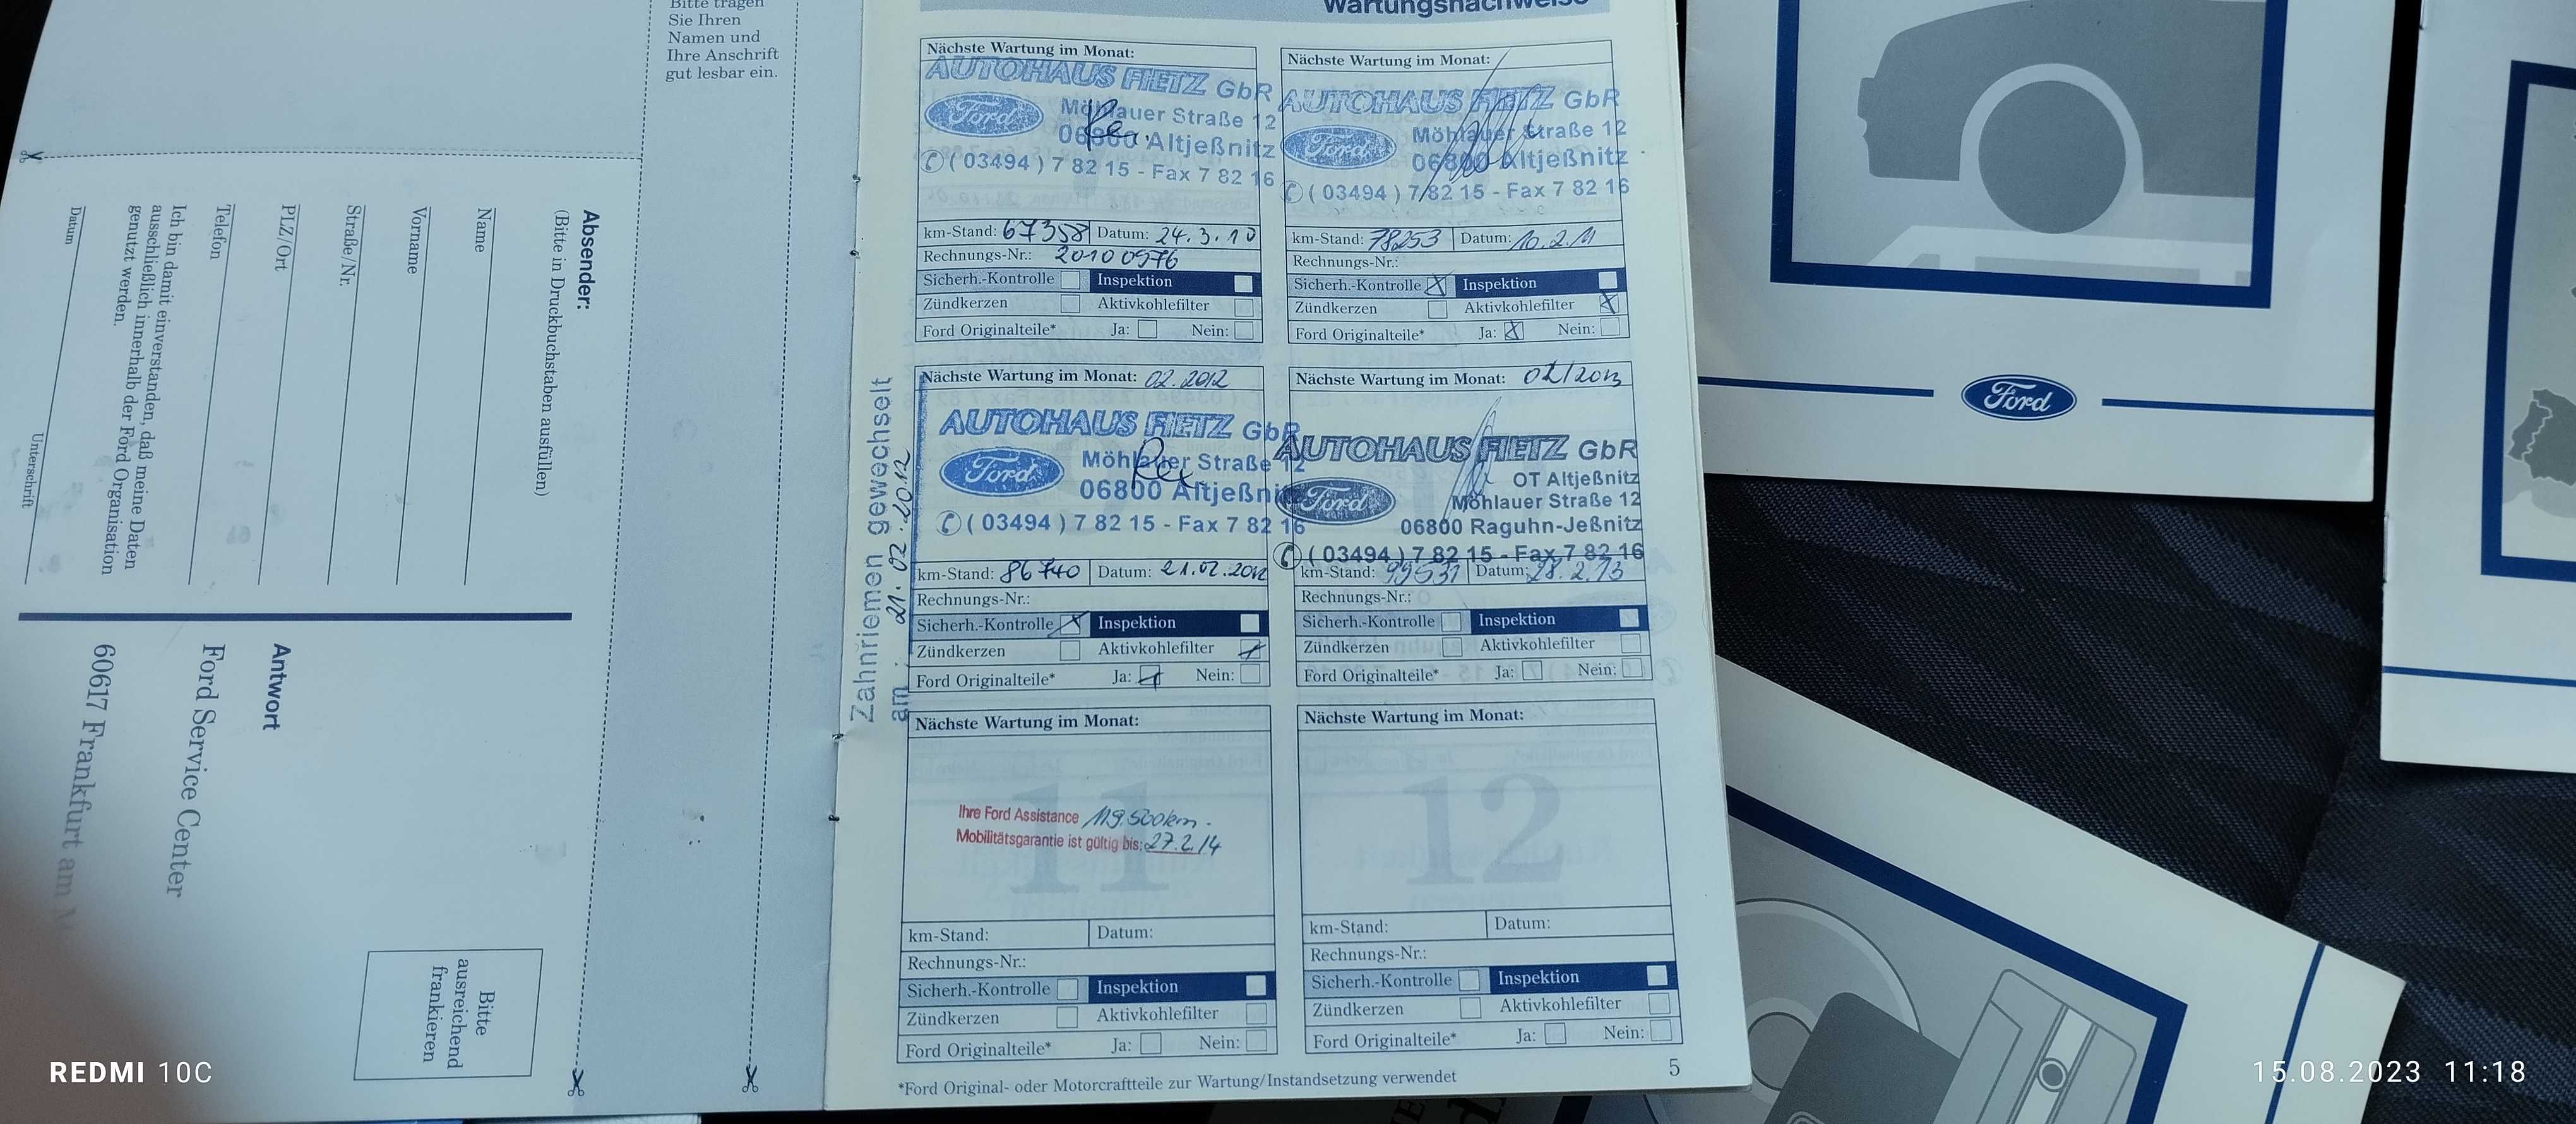 Bitte tragen
Sie Ihren
Namen und
Ihre Anschrift
gut lesbar ein.
Absender:
(Bitte in Druckbuchstaben ausfüllen)
Name
Vorname
Straße/Nr.
PLZ/Ort
Telefon
Ich bin damit einverstanden, daß meine Daten
ausschließlich innerhalb der Ford Organisation
genutzt werden.
Datum
Unterschrift
Antwort
Ford Service Center
60617 Frankfurt am
Bitte
ausreichend
frankieren
Wartungsnachweise
Nächste Wartung im Monat:
AUTOHAUS FIETZ GbR
Ford
Möhlauer Straße 12
06800 Altjeßnitz
(03494) 7 82 15 - Fax 7 82 16
km-Stand: 67358 Datum: 24.3.10
Rechnungs-Nr.: 20100976
Sicherh.-Kontrolle Inspektion
Zündkerzen Aktivkohlefilter
Ford Originalteile* Ja: Nein:
Nächste Wartung im Monat:
AUTOHAUS FIETZ GbR
Ford
Möhlauer Straße 12
06800 Altjeßnitz
(03494) 7 82 15 - Fax 7 82 16
km-Stand: 78253 Datum: 10.2.11
Rechnungs-Nr.:
Sicherh.-Kontrolle X Inspektion
Zündkerzen Aktivkohlefilter X
Ford Originalteile* Ja: X Nein:
Zahnriemen gewechselt
am: 21.02.2012
Nächste Wartung im Monat: 02.2012
AUTOHAUS FIETZ GbR
Ford
Möhlauer Straße 12
06800 Altjeßnitz
(03494) 7 82 15 - Fax 7 82 16
km-Stand: 86740 Datum: 21.02.2012
Rechnungs-Nr.:
Sicherh.-Kontrolle X Inspektion
Zündkerzen Aktivkohlefilter X
Ford Originalteile* Ja: X Nein:
Nächste Wartung im Monat: 02/2013
AUTOHAUS FIETZ GbR
OT Altjeßnitz
Ford
Möhlauer Straße 12
06800 Raguhn-Jeßnitz
(03494) 7 82 15 - Fax 7 82 16
km-Stand: 99531 Datum: 28.2.13
Rechnungs-Nr.:
Sicherh.-Kontrolle Inspektion
Zündkerzen Aktivkohlefilter
Ford Originalteile* Ja: Nein:
Nächste Wartung im Monat:
11
Ihre Ford Assistance 119.500km.
Mobilitätsgarantie ist gültig bis: 27.2.14
km-Stand: Datum:
Rechnungs-Nr.:
Sicherh.-Kontrolle Inspektion
Zündkerzen Aktivkohlefilter
Ford Originalteile* Ja: Nein:
Nächste Wartung im Monat:
12
km-Stand: Datum:
Rechnungs-Nr.:
Sicherh.-Kontrolle Inspektion
Zündkerzen Aktivkohlefilter
Ford Originalteile* Ja: Nein:
*Ford Original- oder Motorcraftteile zur Wartung/Instandsetzung verwendet
5
Ford
REDMI 10C
15.08.2023 11:18